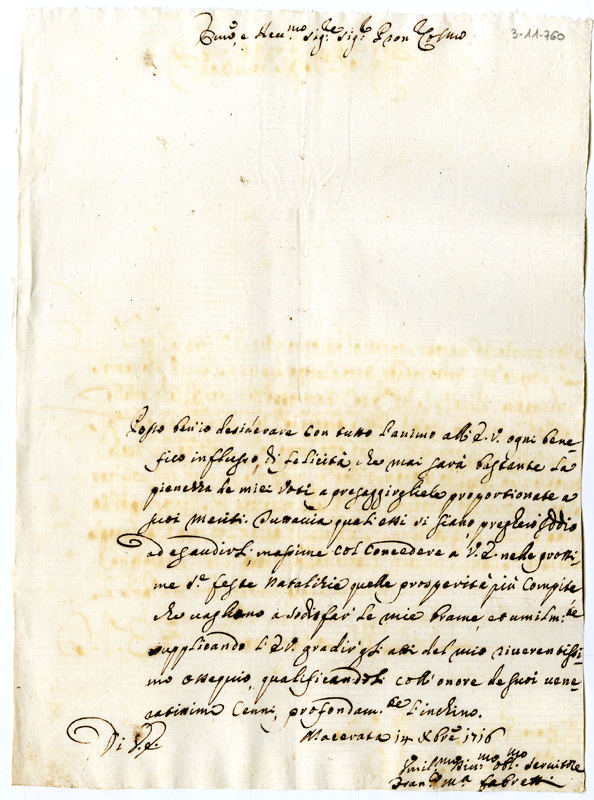 Emo, e Reu.mo Sig.re Sig.r Pron Colmo
3-11-760
Posso ben'io desiderare con tutto l'animo all'E.V. ogni bene-
fico influsso, di felicità, che mai sarà bastante la
pienezza de miei Voti a presaggirgliele proportionate a
suoi meriti. Tuttavia quali essi si siano, pregherò Iddio
ad esaudirli, massime col concedere a V.E. nelle prossi-
me S.e feste Natalizie quelle prosperità più compite
che vagliano a sodisfar le mie brame, et umilm.te
supplicando l'E.V. gradir gli atti del mio riverentissi-
mo ossequio, qualificandoli coll'onore de suoi vene-
ratissimi Cenni, profondam.te l'inchino.
Macerata 14 Xbre 1716
Di V.E.
Umil.mo Diu.mo Obl.mo Servitore
Fran.co M.a Fabretti